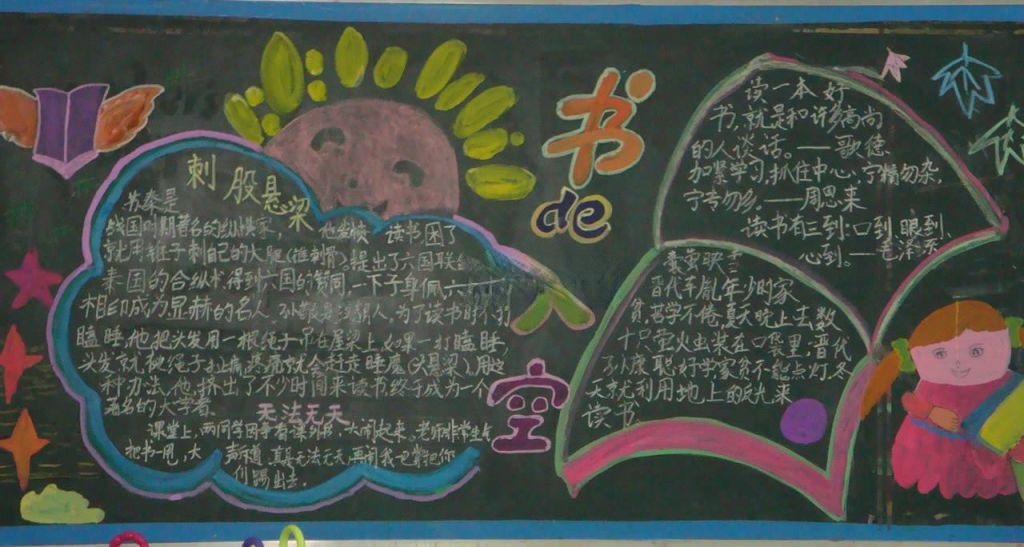 刺股悬梁
苏秦是
战国时期著名的纵横家, 他发愤读书困了
就用锥子刺自己的大腿(锥刺骨)。提出了六国联
秦国的合纵术得到六国的赞同,一下子身佩六
相印成为显赫的名人 孙敬是 人,为了读书时不打
瞌睡,他把头发用一根绳子吊在屋梁上,如果一打瞌睡,
头发就被绳子扯痛,疼痛就会赶走睡魔(头悬梁)用这
种办法,他挤出了不少时间来读书终于成为一个
著名的大学者
无法无天
课堂上,两同学因争看课外书,大闹起来。老师非常生气
把书一甩,大声吼道,真是无法无天,再闹我也 把你
们踢出去.
书
de
空
读一本好
书,就是和许多高尚
的人谈话。—歌德
加紧学习,抓住中心,宁精勿杂
宁专勿多。—周恩来
读书有三到:口到、眼到、
心到。—毛泽东
囊萤映雪
晋代车胤年少时家
贫,苦学不倦,夏天晚上去数
十只萤火虫装在口袋里,晋代
孙康聪好学家贫不能点灯.冬
天就利用地上的反光来
读书